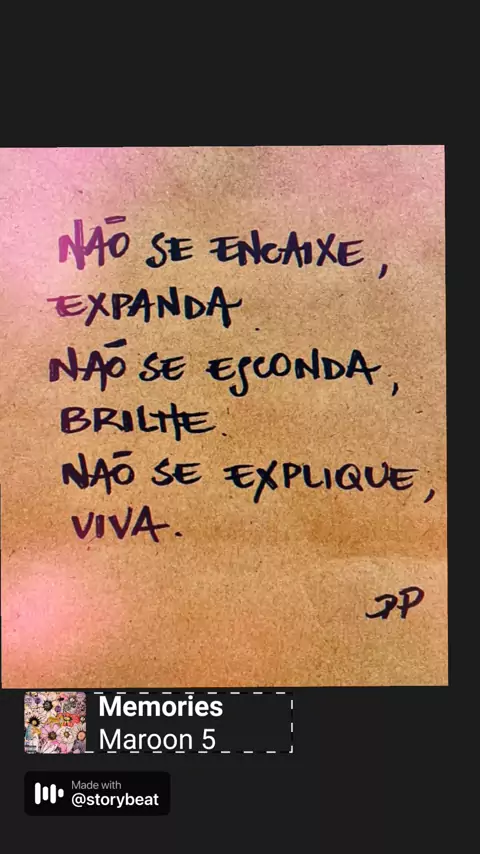 NÃO SE ENCAIXE,
EXPANDA.
NÃO SE ESCONDA,
BRILHE.
NÃO SE EXPLIQUE,
VIVA.
Memories
Maroon 5
Made with
@storybeat